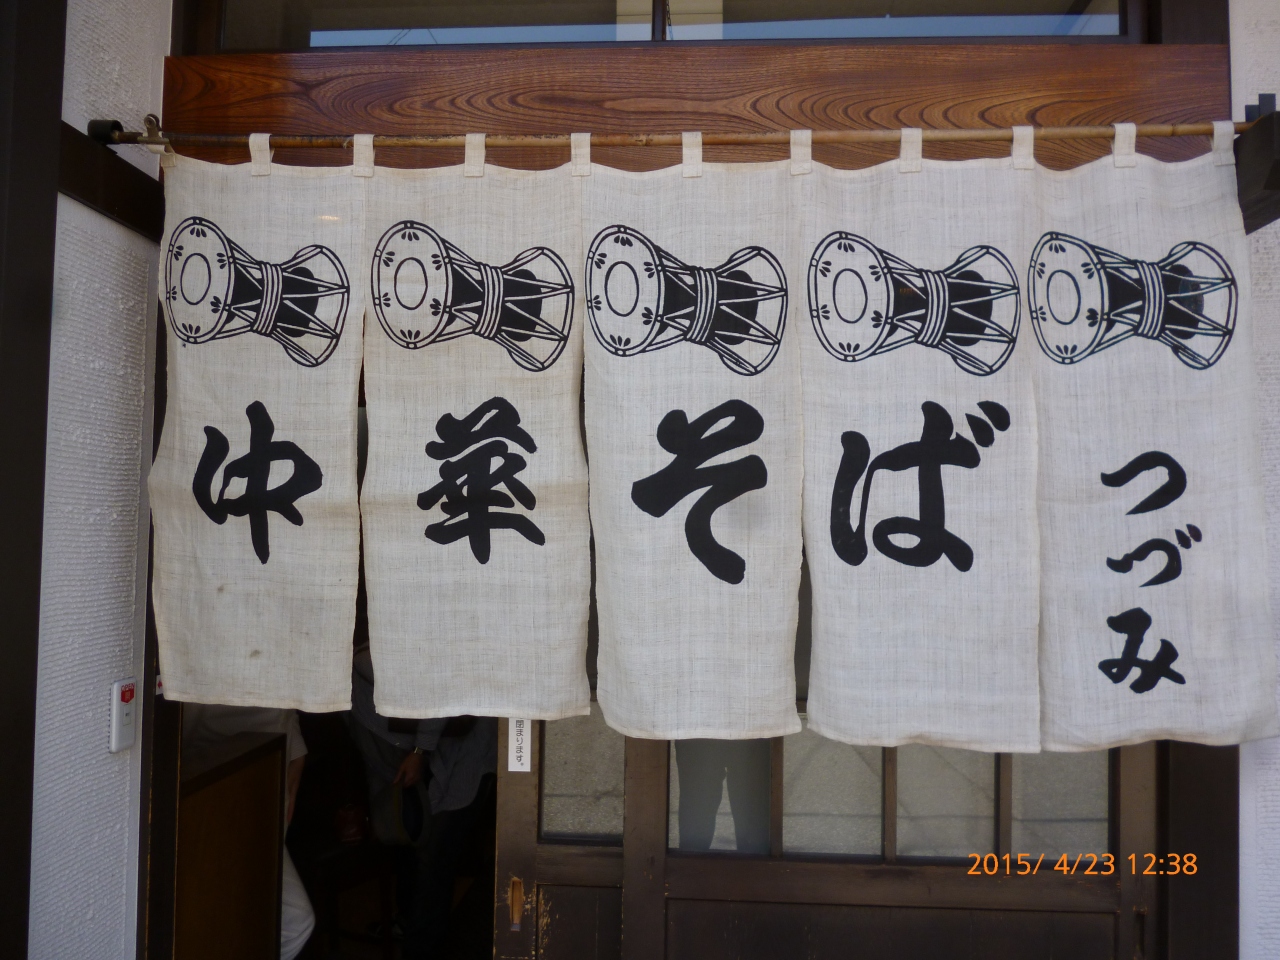 中華そば
つづみ
閉まります。
2015/ 4/23 12:38